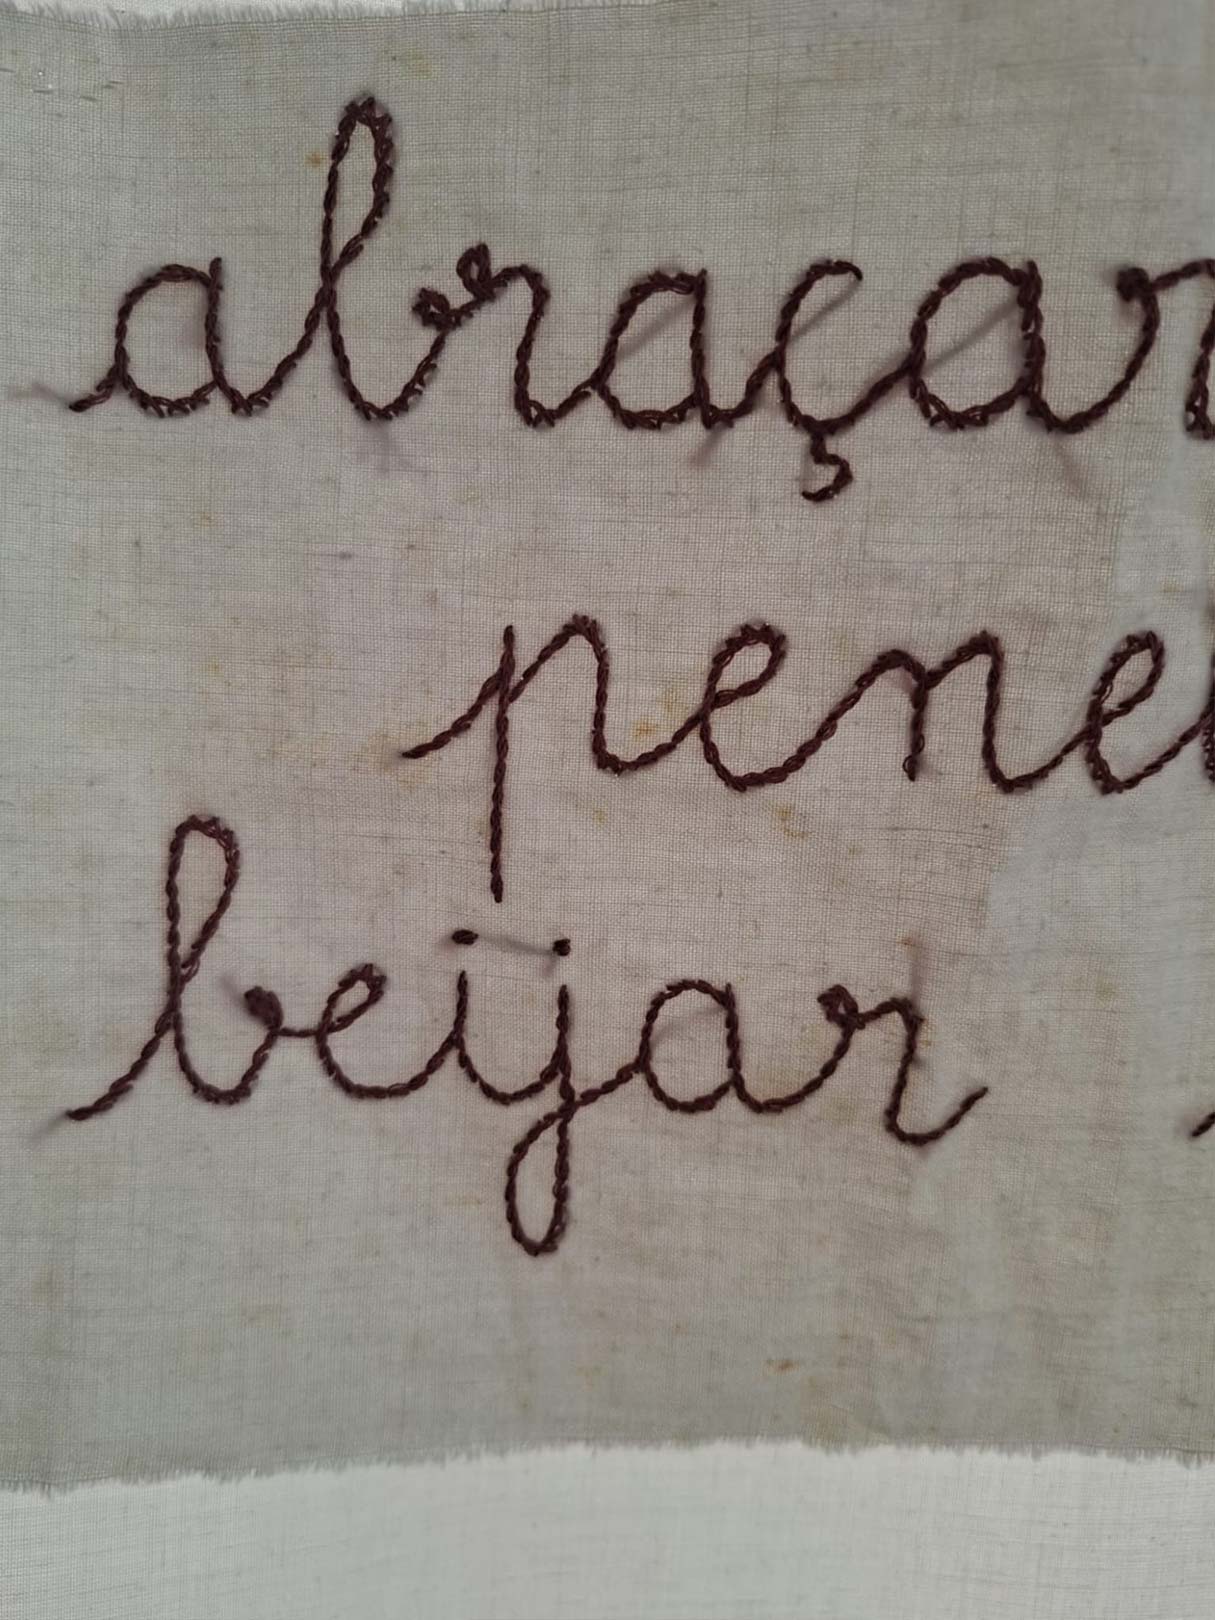 abraçar
pene
beijar